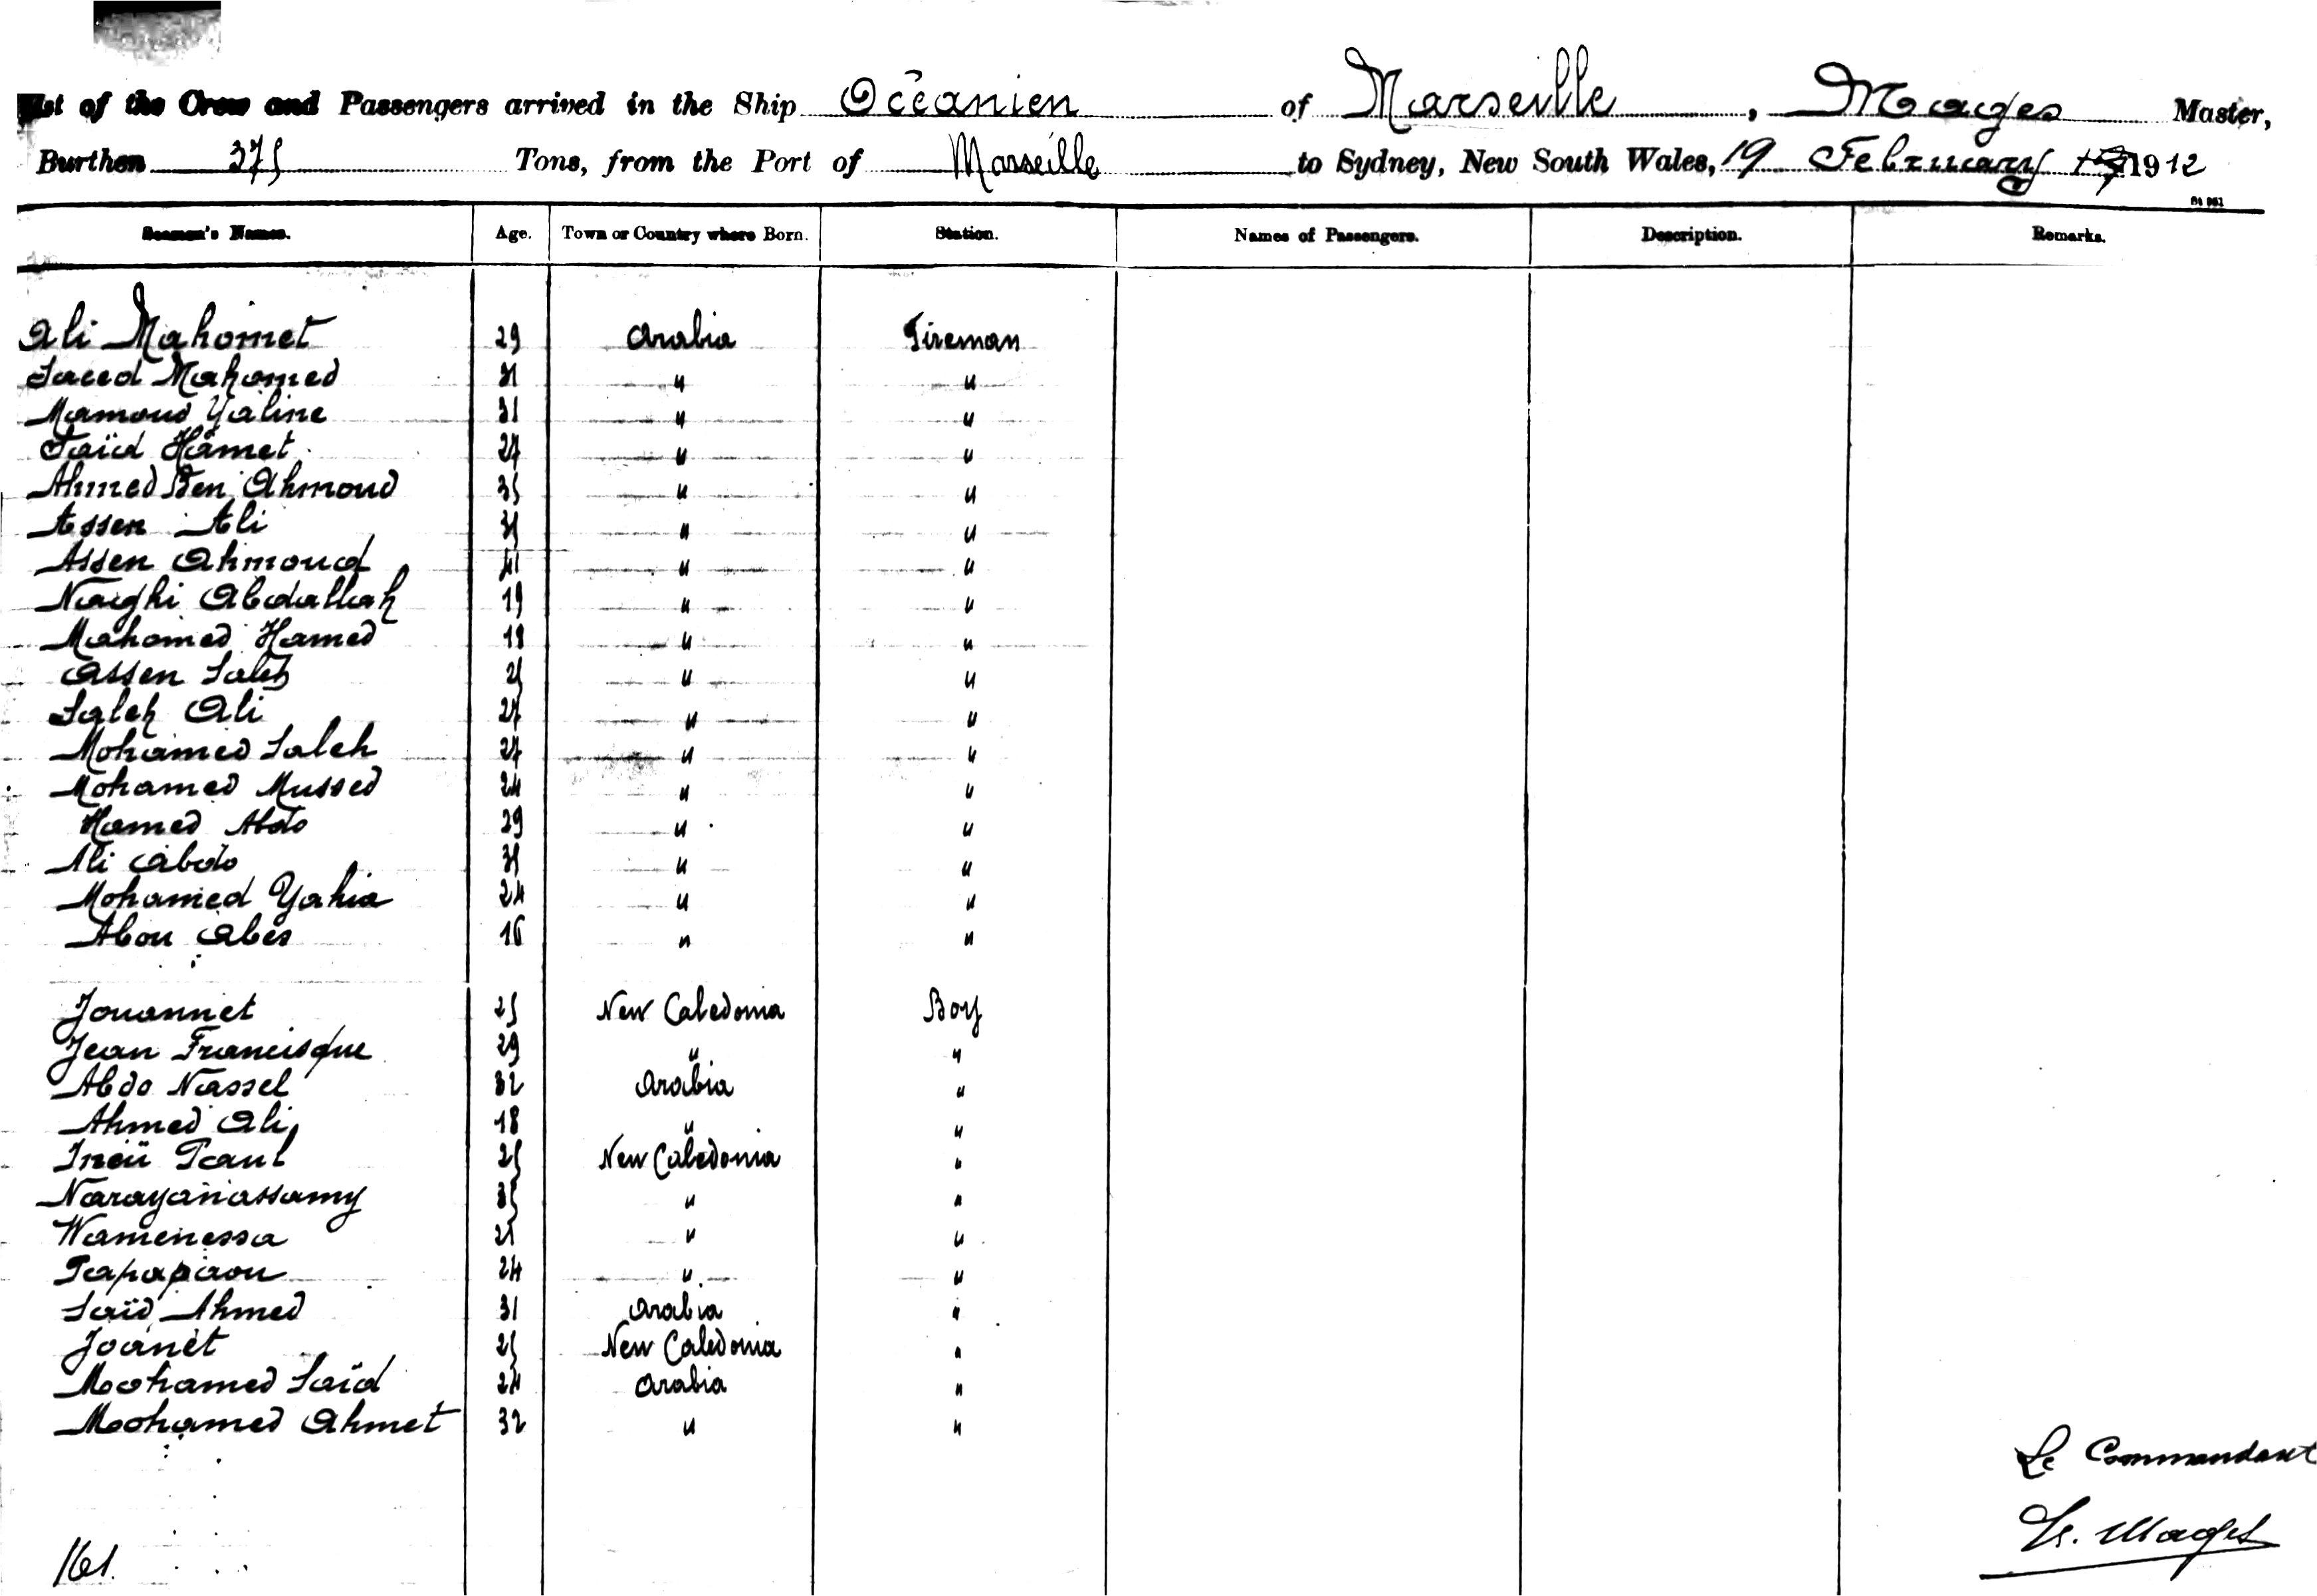 List of the Crew and Passengers arrived in the Ship Océanien of Marseille, Mages Master,
Burthen 375 Tons, from the Port of Marseille to Sydney, New South Wales, 19 February 1912
Seamen's Names. Age. Town or Country where Born. Station. Names of Passengers. Description. Remarks.
Ali Mahomet 29 Arabia Fireman
Saeed Mahomed 31 " "
Mamoud Yaline 31 " "
Saïd Hamet 27 " "
Ahmed Ben Ahmoud 35 " "
Assen Ali " "
Assen Ahmoud 41 " "
Naghi Abdallah 19 " "
Mahomed Hamed 18 " "
Assen Saleh " "
Saleh Ali 27 " "
Mohamed Saleh 27 " "
Mohamed Mussed 24 " "
Hamed Abdo 29 " "
Ali Abdo " "
Mohamed Yahia 24 " "
Abou Abes 16 " "
Jouannet 25 New Caledonia Boy
Jean Francisque 29 " "
Abdo Nassel 32 Arabia "
Ahmed Ali 18 " "
New Caledonia "
Narayanassamy 35 " "
Wamenessa " "
Papapaou 24 " "
Saïd Ahmed 31 Arabia "
Joanet 25 New Caledonia "
Moohamed Saïd 24 Arabia "
Moohamed Ahmet 32 " "
Le Commandant
Mages
161.